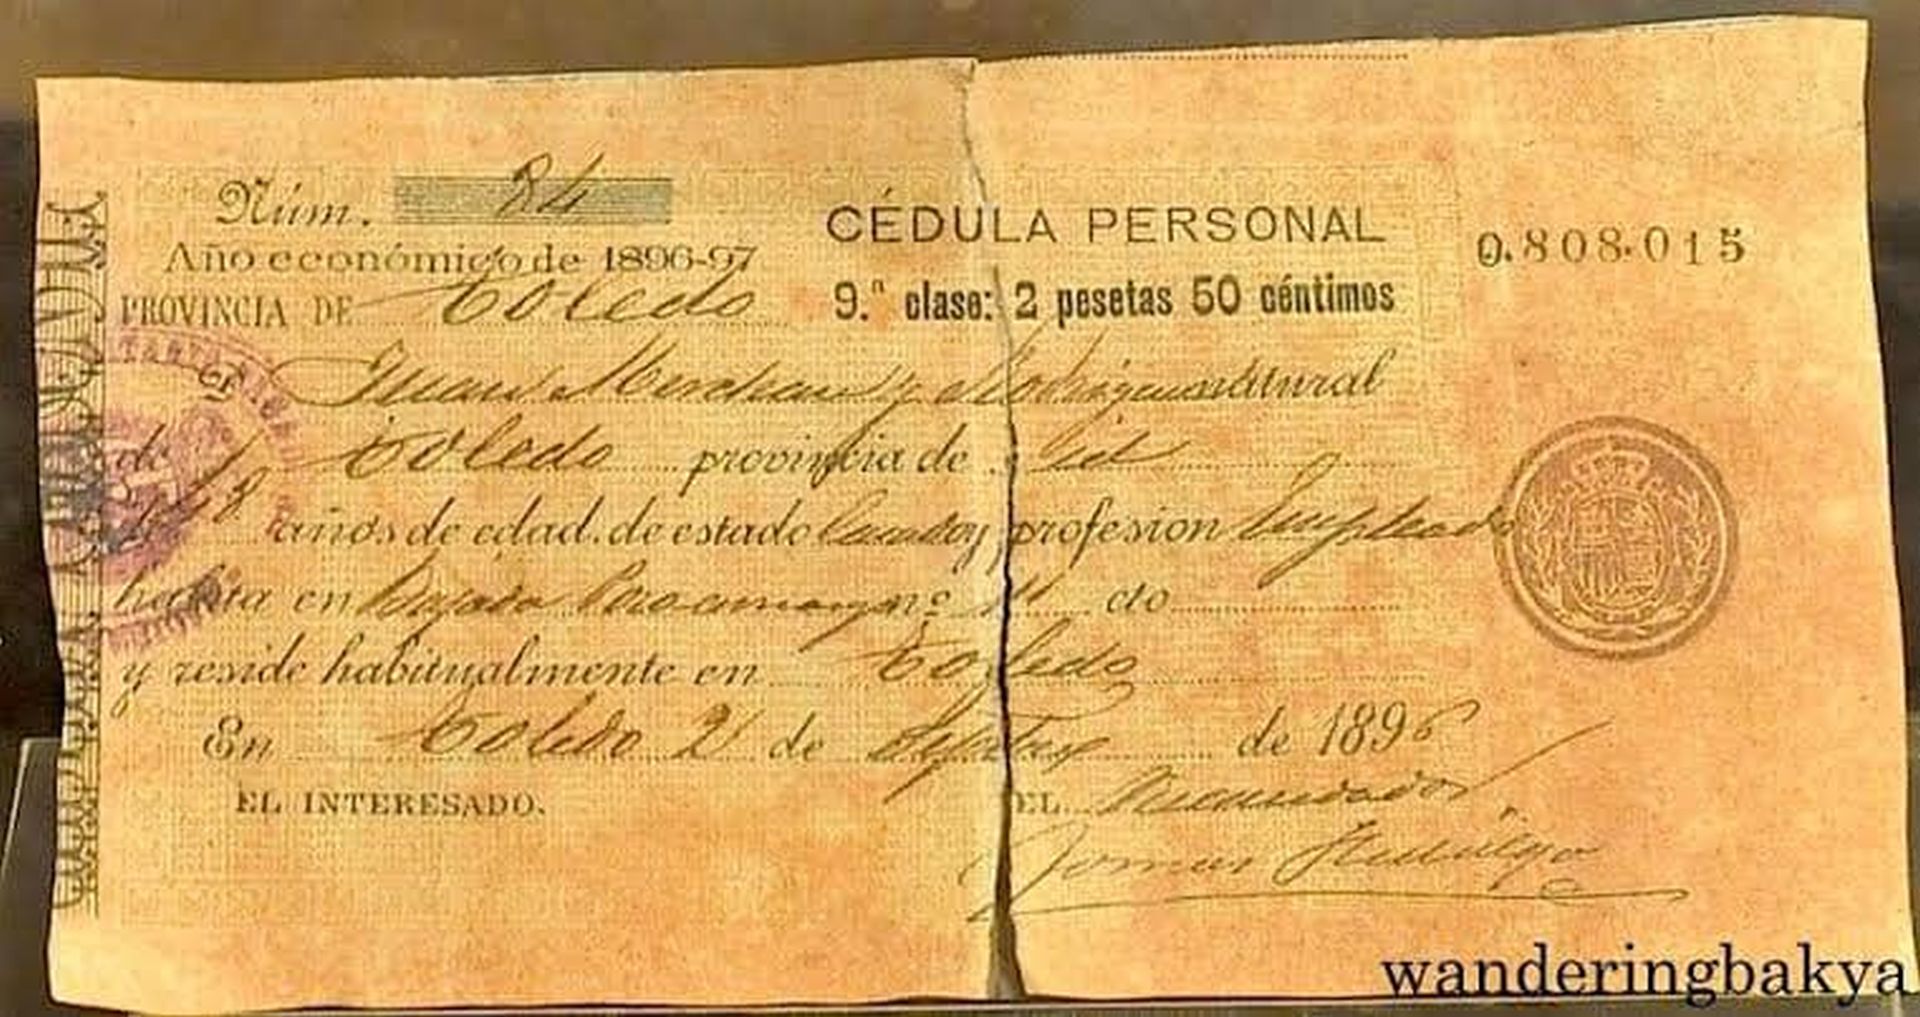 Núm. 84
Año económico de 1896-97
PROVINCIA DE Toledo
CÉDULA PERSONAL
9.ª clase: 2 pesetas 50 céntimos
0.808.015
Juan y natural
de Toledo provincia de id
48 años de edad, de estado Casado y profesion Empleado
habita en Bajada n.º 11 cto
y reside habitualmente en Toledo
En Toledo 21 de Septbre de 1896
EL INTERESADO.
EL Recaudador
Tomas Hidalgo
wanderingbakya